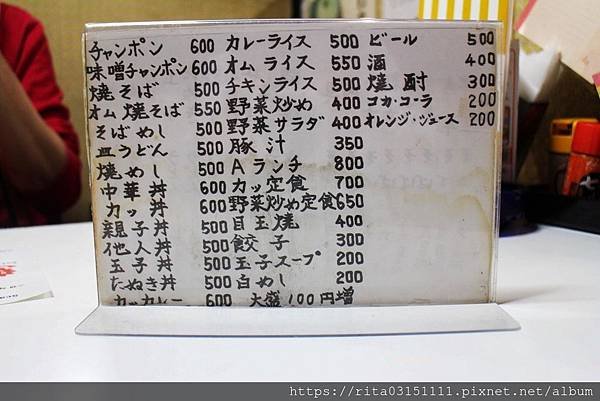 チャンポン 600 カレーライス 500 ビール 500
味噌チャンポン 600 オムライス 550 酒 400
焼そば 500 チキンライス 500 焼酎 300
オム焼そば 550 野菜炒め 400 コカ・コーラ 200
そばめし 500 野菜サラダ 400 オレンジ・ジュース 200
皿うどん 豚汁 350
焼めし 500 Aランチ 800
中華丼 600 カツ定食 700
カツ丼 600 野菜炒め定食 650
親子丼 500 目玉焼 400
他人丼 500 餃子 300
玉子丼 500 玉子スープ 200
たぬき丼 500 白めし 200
カツカレー 600 大盛100円増
https://rita03151111.pixnet.net/album